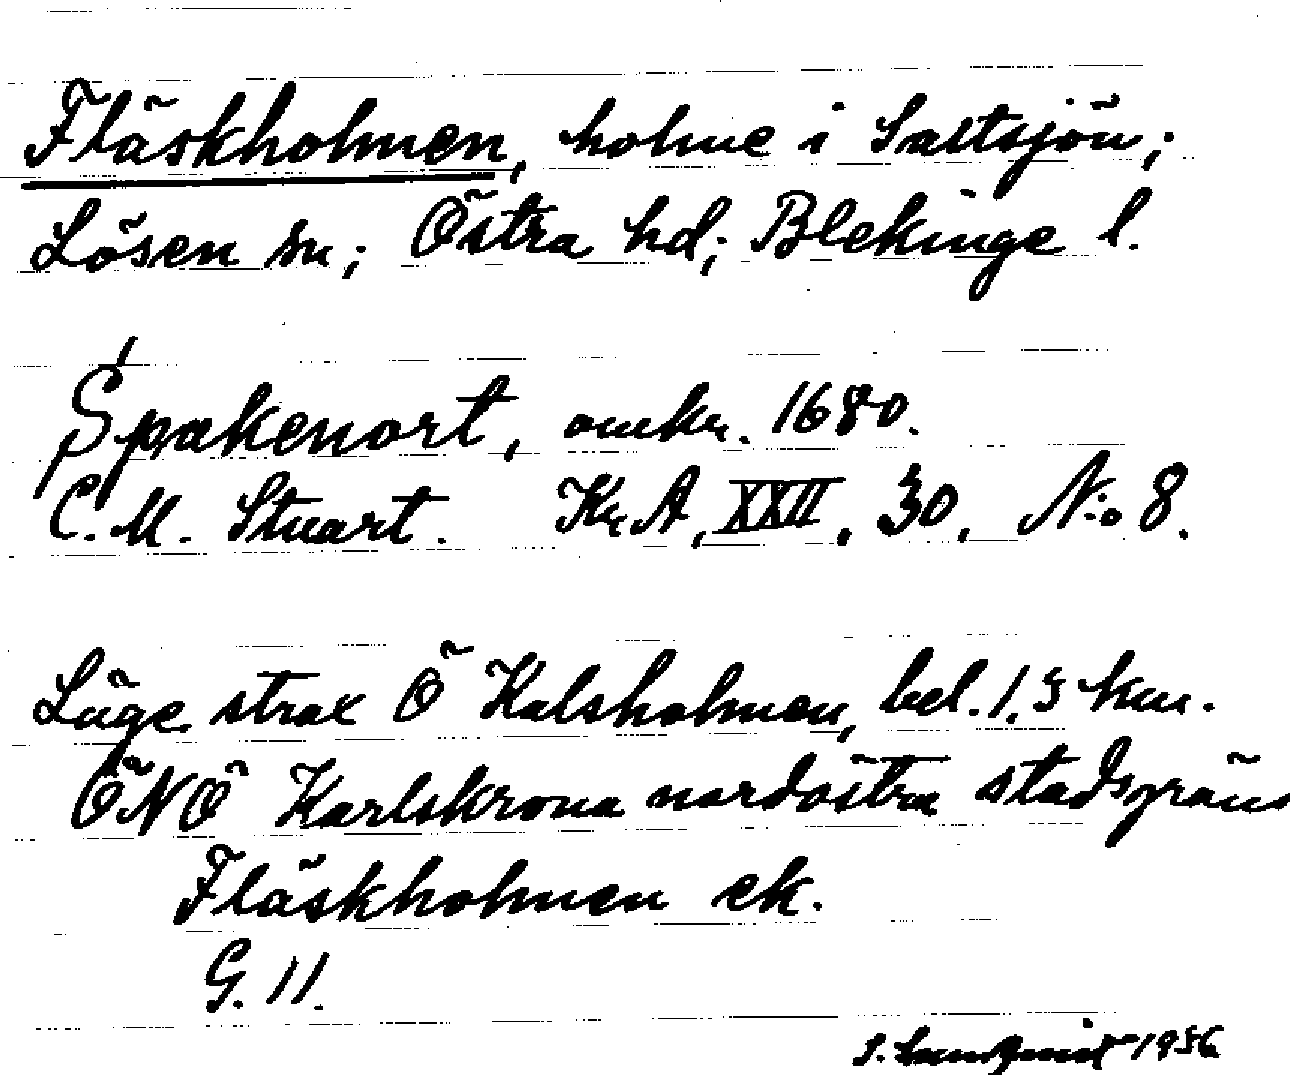 Fläskholmen, holme i Saltsjön;
Lösen sn; Östra hd; Blekinge l.
Spakenort, omkr. 1680.
C. M. Stuart. Kr A, XXII, 30, No 8.
Läge strax Ö Kalsholmen, bel. 1,5 km.
ÖNÖ Karlskrona nordöstra stadsgräns
Fläskholmen ek.
G. 11.
S. 1956